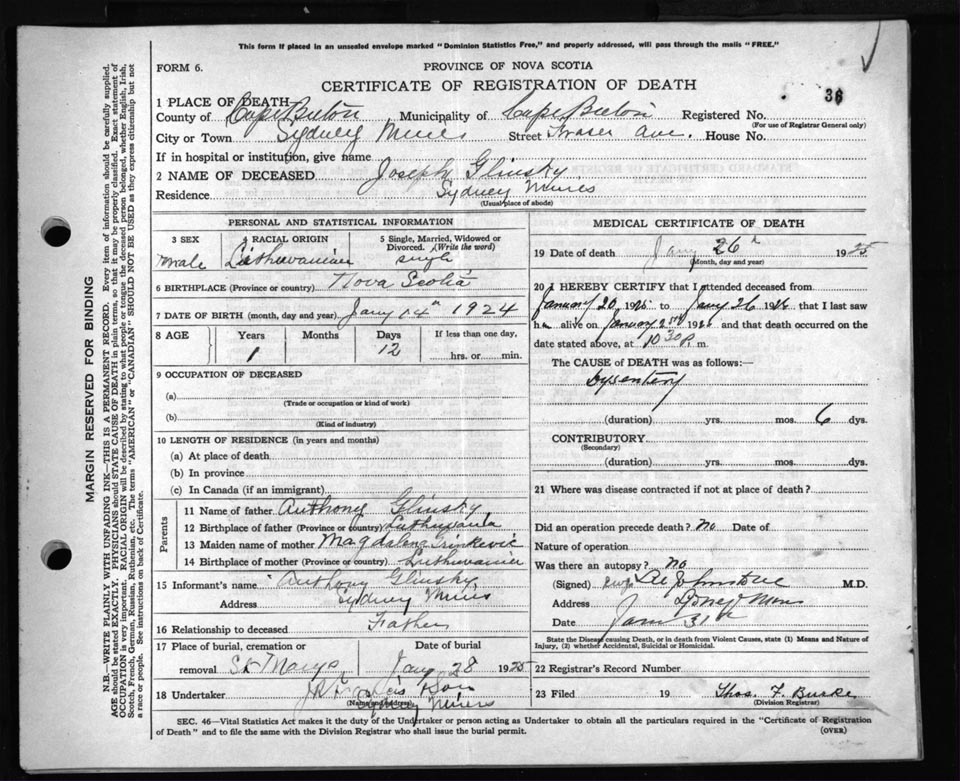 This form if placed in an unsealed envelope marked "Dominion Statistics Free," and properly addressed, will pass through the mails "FREE."
FORM 6.
PROVINCE OF NOVA SCOTIA
CERTIFICATE OF REGISTRATION OF DEATH
36
1 PLACE OF DEATH—
County of Cape Breton Municipality of Cape Breton Registered No.
(For use of Registrar General only)
City or Town Sydney Mines Street Fraser Ave. House No.
If in hospital or institution, give name
2 NAME OF DECEASED Joseph Glinsky
Residence Sydney Mines
(Usual place of abode)
PERSONAL AND STATISTICAL INFORMATION
3 SEX 4 RACIAL ORIGIN 5 Single, Married, Widowed or Divorced. (Write the word)
male Lithuvanian single
6 BIRTHPLACE (Province or country) Nova Scotia
7 DATE OF BIRTH (month, day and year) Jany 14th 1924
8 AGE Years Months Days If less than one day,
1 12 hrs. or min.
9 OCCUPATION OF DECEASED
(a)
(Trade or occupation or kind of work)
(b)
(Kind of industry)
10 LENGTH OF RESIDENCE (in years and months)
(a) At place of death
(b) In province
(c) In Canada (if an immigrant)
Parents
11 Name of father Anthony Glinsky
12 Birthplace of father (Province or country) Lithuvania
13 Maiden name of mother Magdalena Trinkevic
14 Birthplace of mother (Province or country)
15 Informant's name Anthony Glinsky
Address Sydney Mines
16 Relationship to deceased Father
17 Place of burial, cremation or removal Date of burial
St Marys Jany 28 1925
18 Undertaker
(Name and Address)
Sydney Mines
MEDICAL CERTIFICATE OF DEATH
19 Date of death Jany 26th 1925
(Month, day and year)
20 I HEREBY CERTIFY that I attended deceased from
January 20 1925 to Jany 26 1925 that I last saw
h alive on January 1925 and that death occurred on the
date stated above, at 10 30 P. m.
The CAUSE of DEATH was as follows:—
Dysentery
(duration) yrs. mos. 6 dys.
CONTRIBUTORY
(Secondary)
(duration) yrs. mos. dys.
21 Where was disease contracted if not at place of death?
Did an operation precede death? no Date of
Nature of operation
Was there an autopsy? no
(Signed) Johnstone M.D.
Address Sydney Mines
Date Jan 31st
State the Disease causing Death, or in death from Violent Causes, state (1) Means and Nature of Injury, (2) whether Accidental, Suicidal or Homicidal.
22 Registrar's Record Number
23 Filed 19 Thos. F. Burke
(Division Registrar)
SEC. 46—Vital Statistics Act makes it the duty of the Undertaker or person acting as Undertaker to obtain all the particulars required in the "Certificate of Registration of Death" and to file the same with the Division Registrar who shall issue the burial permit. (OVER)
MARGIN RESERVED FOR BINDING
N.B.—WRITE PLAINLY WITH UNFADING INK—THIS IS A PERMANENT RECORD. Every item of information should be carefully supplied.
AGE should be stated EXACTLY. PHYSICIANS should STATE CAUSE OF DEATH in plain terms, so that it may be properly classified. Exact statement of
OCCUPATION is very important. RACIAL ORIGIN will be described by stating to what people or tongue the deceased person belonged, whether English, Irish,
Scotch, French, German, Russian, Ruthenian, etc. The terms "AMERICAN" or "CANADIAN" SHOULD NOT BE USED as they express citizenship but not
a race or people. See instructions on back of Certificate.